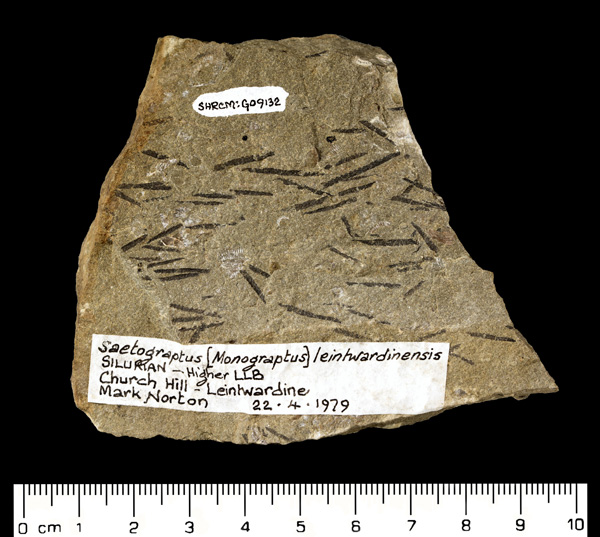 SHRCM: G09132
Saetograptus {Monograptus} leintwardinensis
SILURIAN – Higher LLB
Church Hill - Leintwardine
Mark Norton 22.4.1979
0 cm 1 2 3 4 5 6 7 8 9 10